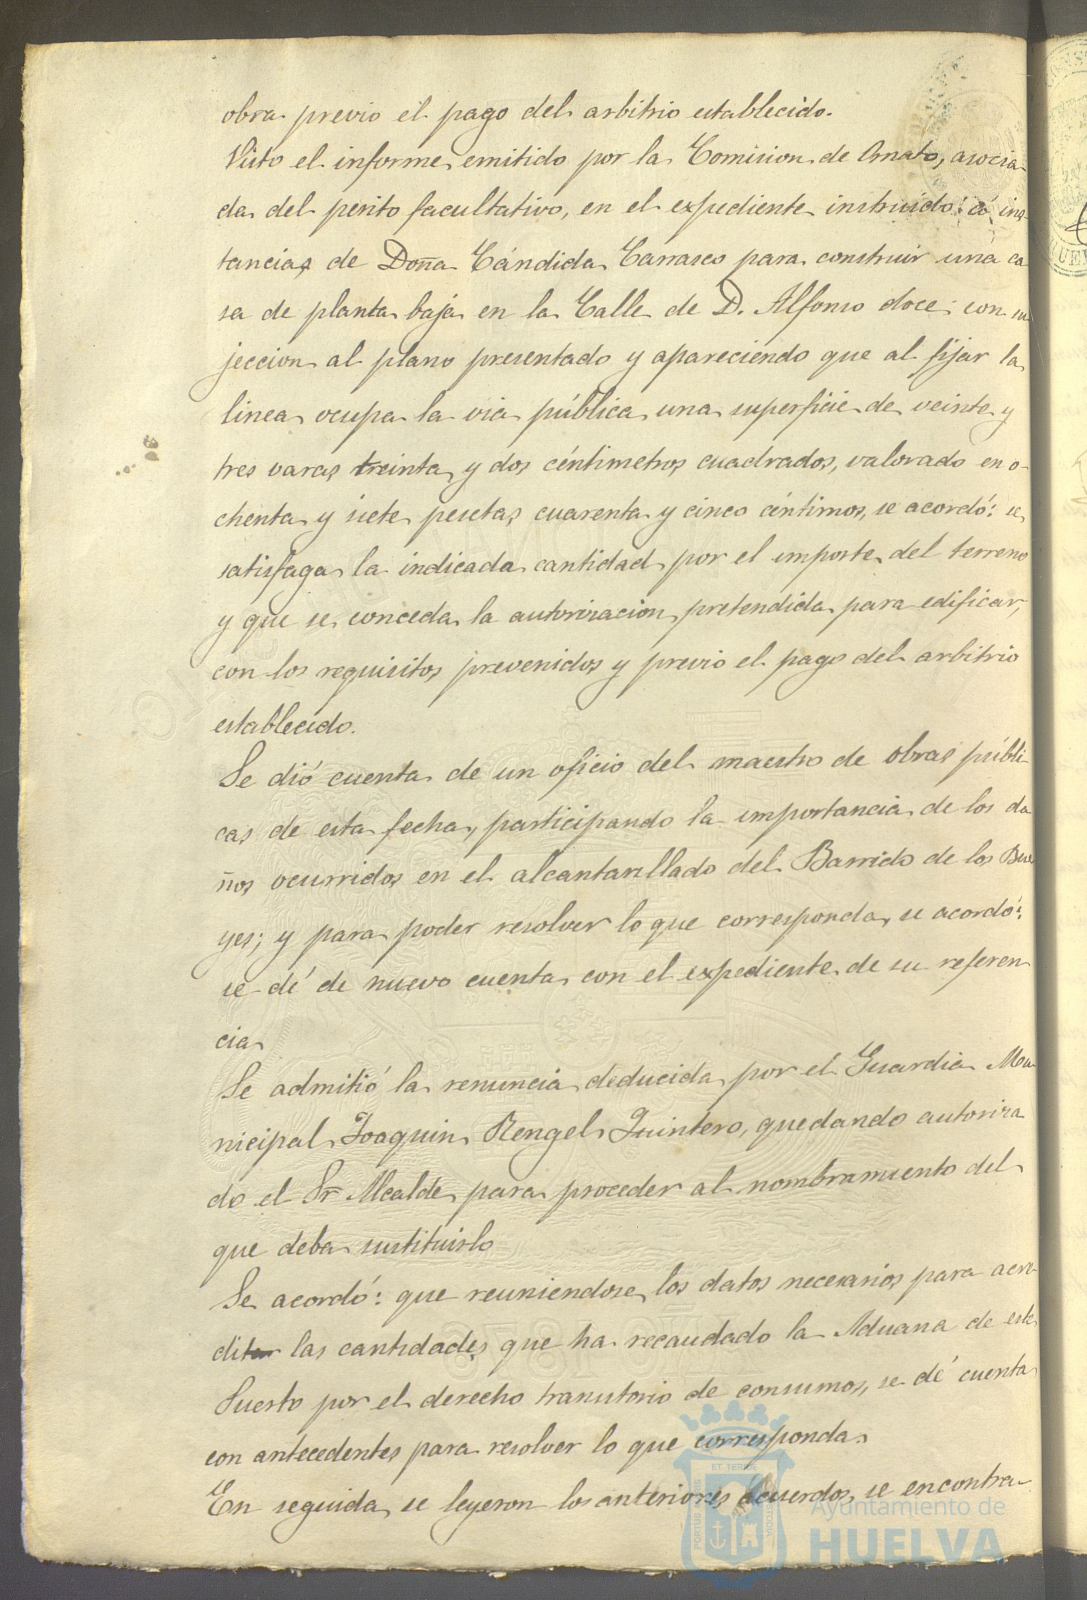 obra previo el pago del arbitrio establecido.
Visto el informe emitido por la Comision de Ornato, asocia-
da del perito facultativo, en el expediente instruido á ins-
tancias de Doña Cándida Carrasco para construir una ca
sa de planta baja en la Calle de D. Alfonso doce; con su
jeccion al plano presentado y apareciendo que al fijar la
linea ocupa la via pública una superficie de veinte y
tres varas treinta y dos céntimetros cuadrados, valorado en o-
chenta y siete pesetas cuarenta y cinco céntimos, se acordó: se
satisfaga la indicada cantidad por el importe del terreno
y que se conceda la autorizacion pretendida para edificar,
con los requisitos prevenidos y previo el pago del arbitrio
establecido.
Se dió cuenta de un oficio del maestro de obras públi-
cas de esta fecha, participando la importancia de los da
ños ocurridos en el alcantarillado del Barrido de los Bue
yes; y para poder resolver lo que corresponda, se acordó:
se dé de nuevo cuenta con el expediente de su referen
cia
Se admitió la renuncia deducida por el Guardia Mu
nicipal Joaquin Rengel Quintero, quedando autoriza
do el Sr Alcalde para proceder al nombramiento del
que deba sustituirlo
Se acordó: que reuniendose los datos necesarios para acre
ditar las cantidades que ha recaudado la Aduana de este
Puerto por el derecho transitorio de consumos, se dé cuenta
con antecedentes para resolver lo que corresponda.
En seguida se leyeron los anteriores acuerdos, se encontra-
Ayuntamiento de
HUELVA